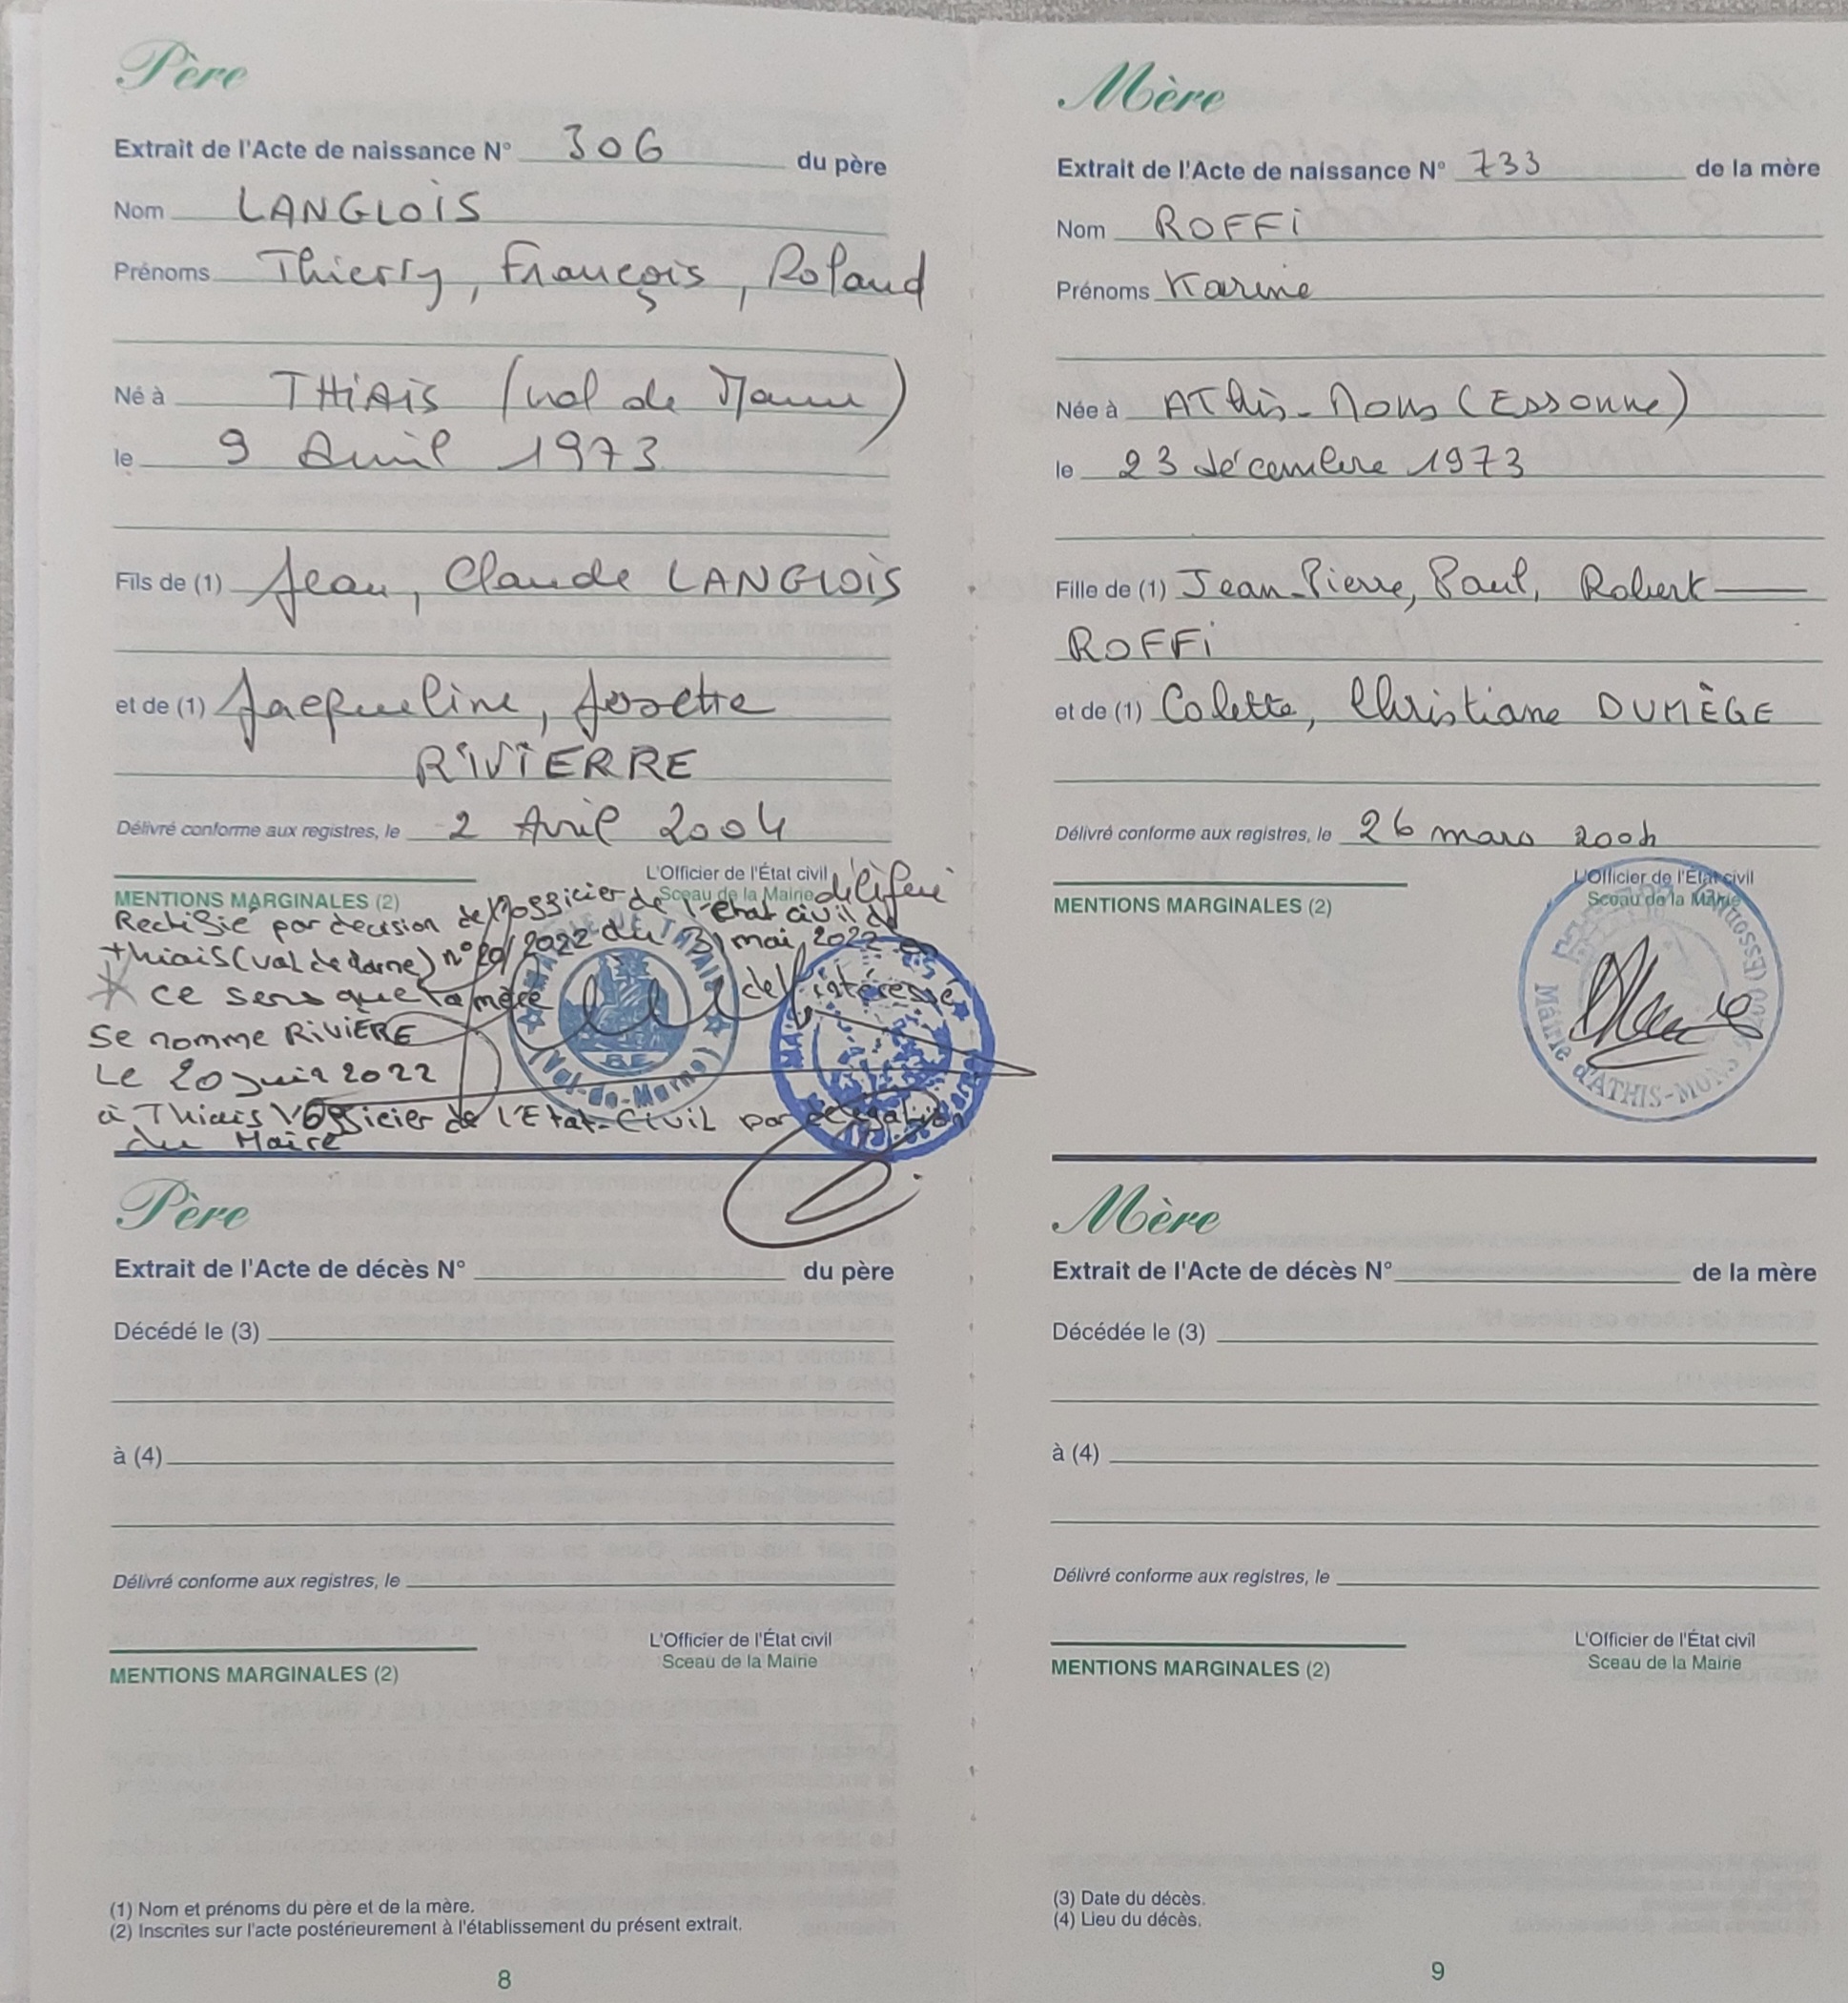 Père
Extrait de l'Acte de naissance N° 306 du père
Nom LANGLOIS
Prénoms Thierry, François, Roland
Né à THIAIS (Val de Marne)
le 9 Avril 1973
Fils de (1) Jean, Claude LANGLOIS
et de (1) Jacqueline, Josette
RIVIERRE
Délivré conforme aux registres, le 2 Avril 2004
L'Officier de l'État civil
Sceau de la Mairie
MENTIONS MARGINALES (2)
Rectifié par decision de l'officier de l'etat civil de
thiais (val de Marne) n° 20/2022 du 31 mai 2022 en
ce sens que la mère de l'intéressé
se nomme RIVIÈRE
Le 20 juin 2022
à Thiais l'Officier de l'Etat-Civil par délégation
du Maire
MAIRIE DE THIAIS
(Val-de-Marne)
Père
Extrait de l'Acte de décès N° du père
Décédé le (3)
à (4)
Délivré conforme aux registres, le
L'Officier de l'État civil
Sceau de la Mairie
MENTIONS MARGINALES (2)
(1) Nom et prénoms du père et de la mère.
(2) Inscrites sur l'acte postérieurement à l'établissement du présent extrait.
8
Mère
Extrait de l'Acte de naissance N° 733 de la mère
Nom ROFFI
Prénoms Karine
Née à ATHis-Mons (Essonne)
le 23 décembre 1973
Fille de (1) Jean-Pierre, Paul, Robert
ROFFI
et de (1) Colette, Christiane DUMÈGE
Délivré conforme aux registres, le 26 mars 2004
L'Officier de l'État civil
Sceau de la Mairie
MENTIONS MARGINALES (2)
Mairie d'ATHIS-MONS 91200 (Essonne)
Mère
Extrait de l'Acte de décès N° de la mère
Décédée le (3)
à (4)
Délivré conforme aux registres, le
L'Officier de l'État civil
Sceau de la Mairie
MENTIONS MARGINALES (2)
(3) Date du décès.
(4) Lieu du décès.
9